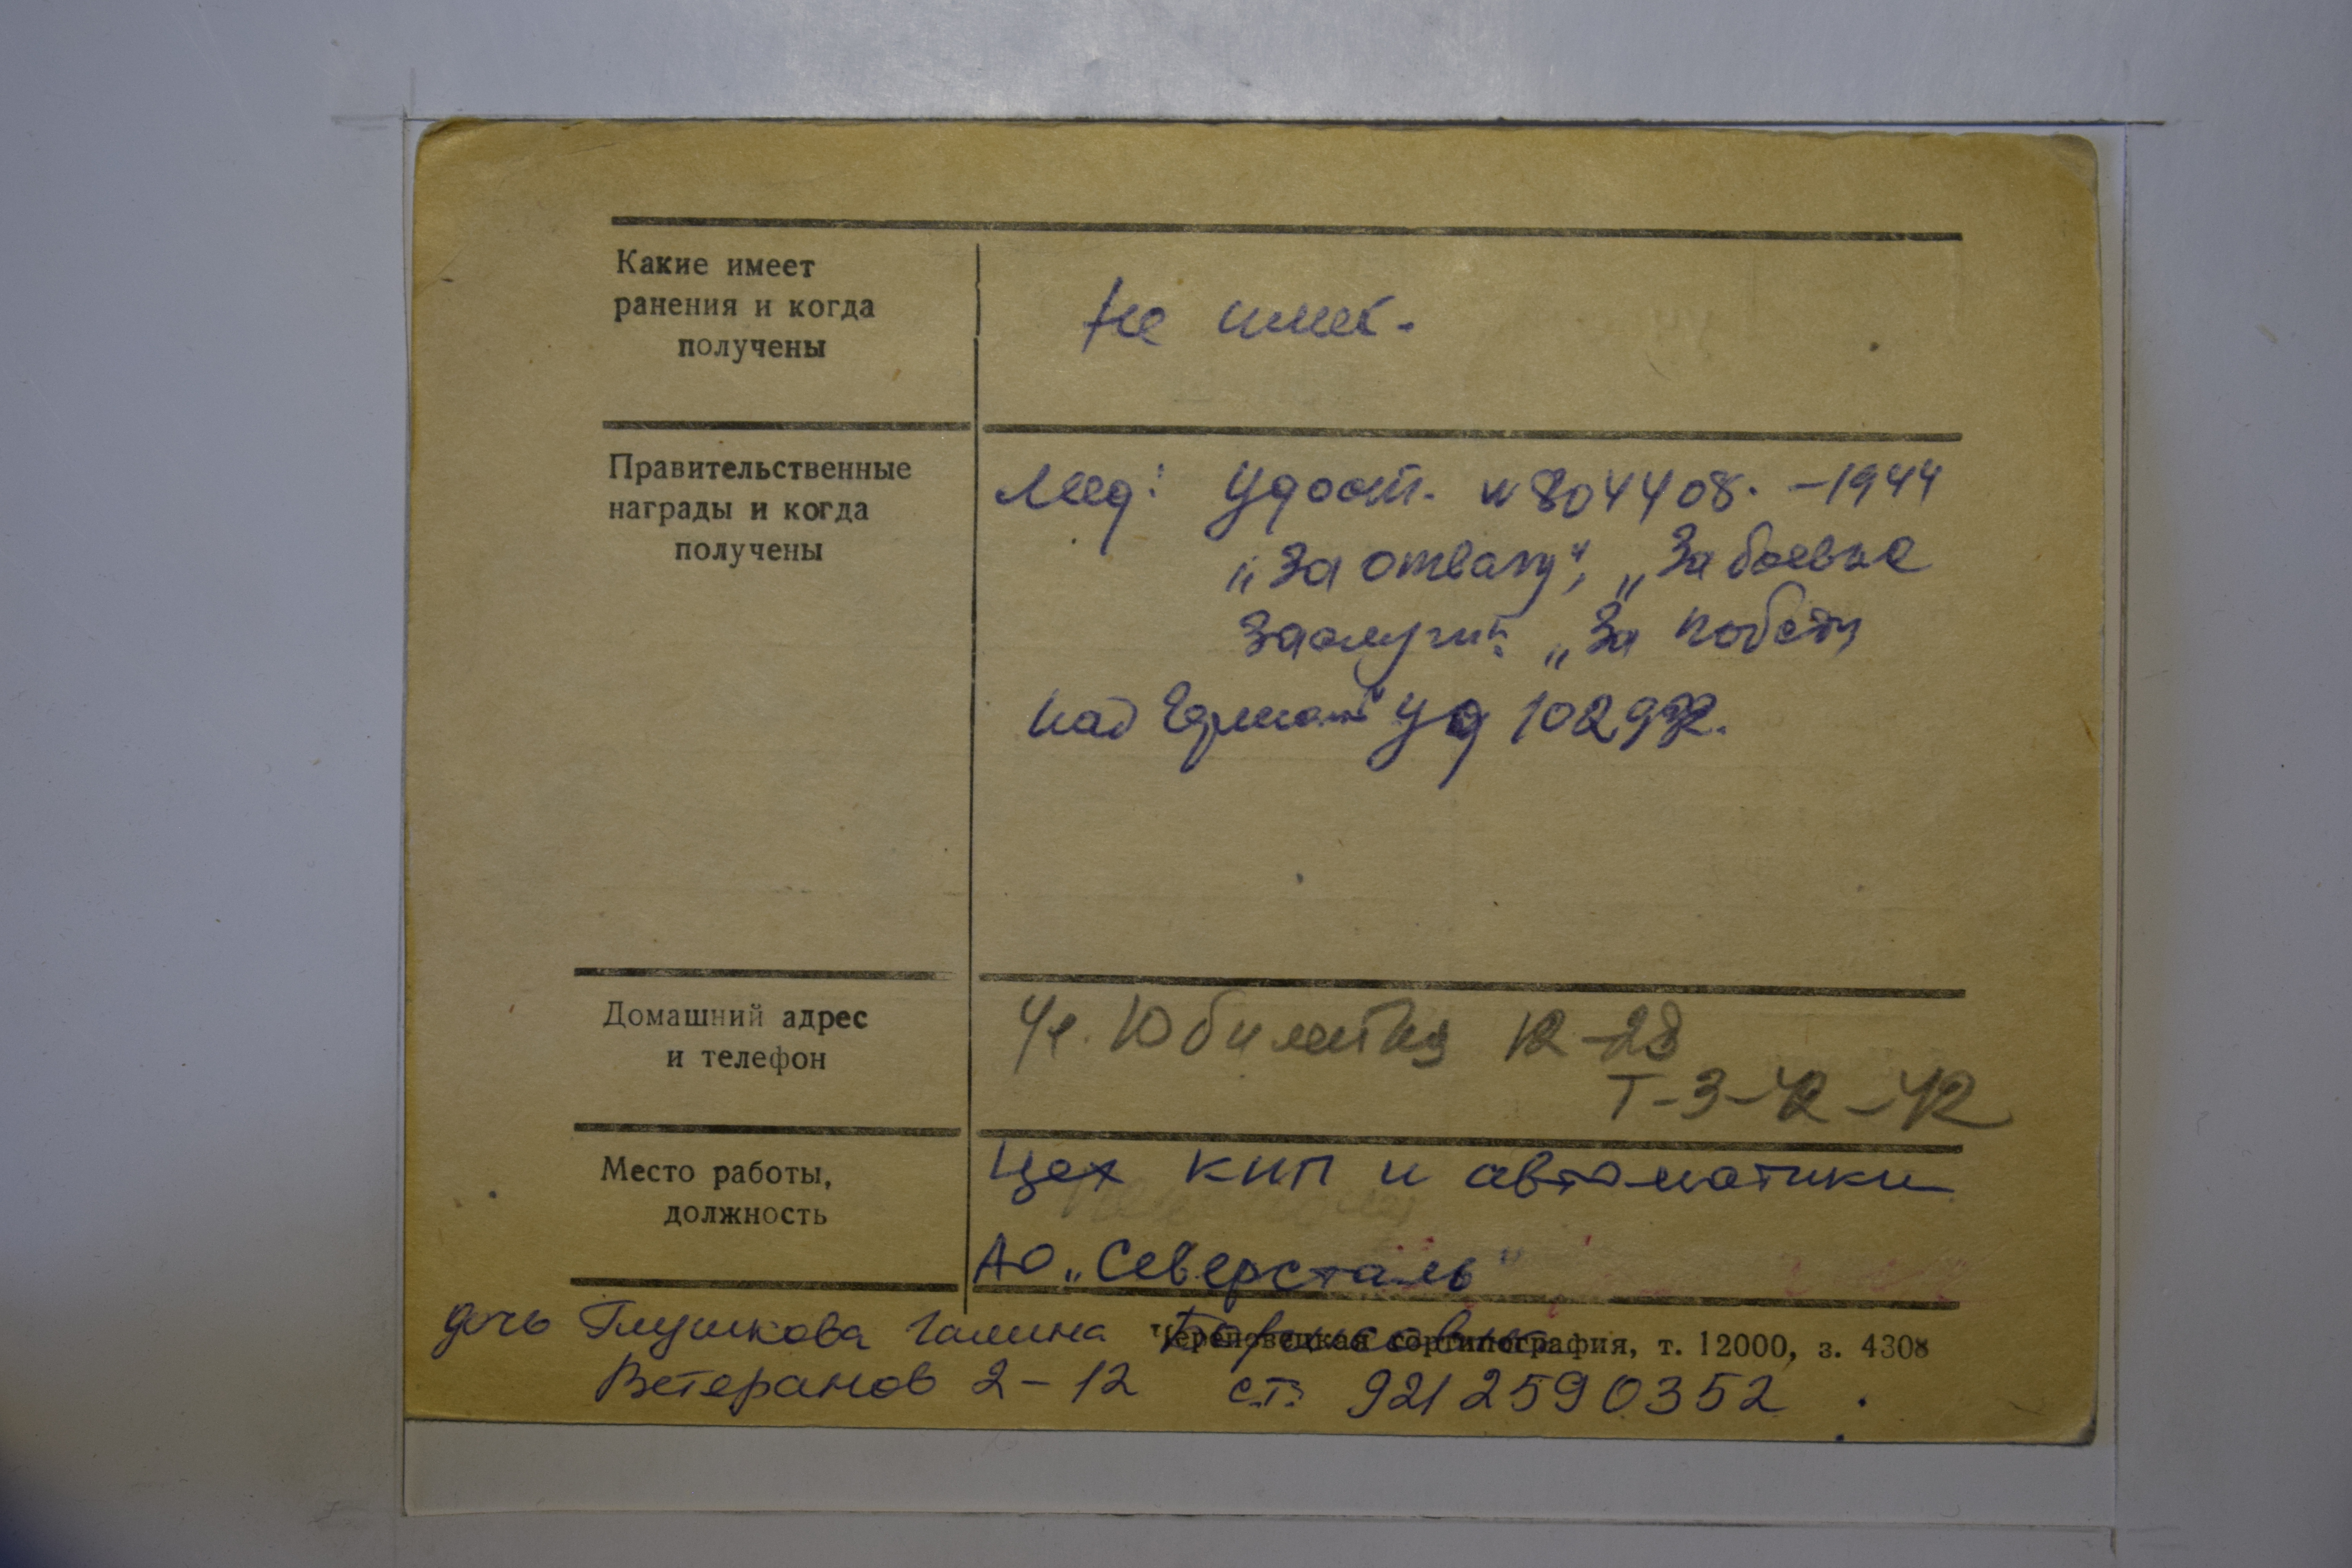 Какие имеет
ранения и когда
получены
не имеет.
Правительственные
награды и когда
получены
Мед: Удост. № 804408. – 1944
„За отвагу“, „За боевые
заслуги“. „За победу
над Герман“ уд
Домашний адрес
и телефон
Ул. Юбилейная 12–28
Т–3–42–42
Место работы,
должность
Цех КИП и автоматики
АО „Северсталь“
дочь Глушкова Галина Борисовна
Череповецкая гортипография, т. 12000, з. 4308
Ветеранов 2–12 с.т. 9212590352